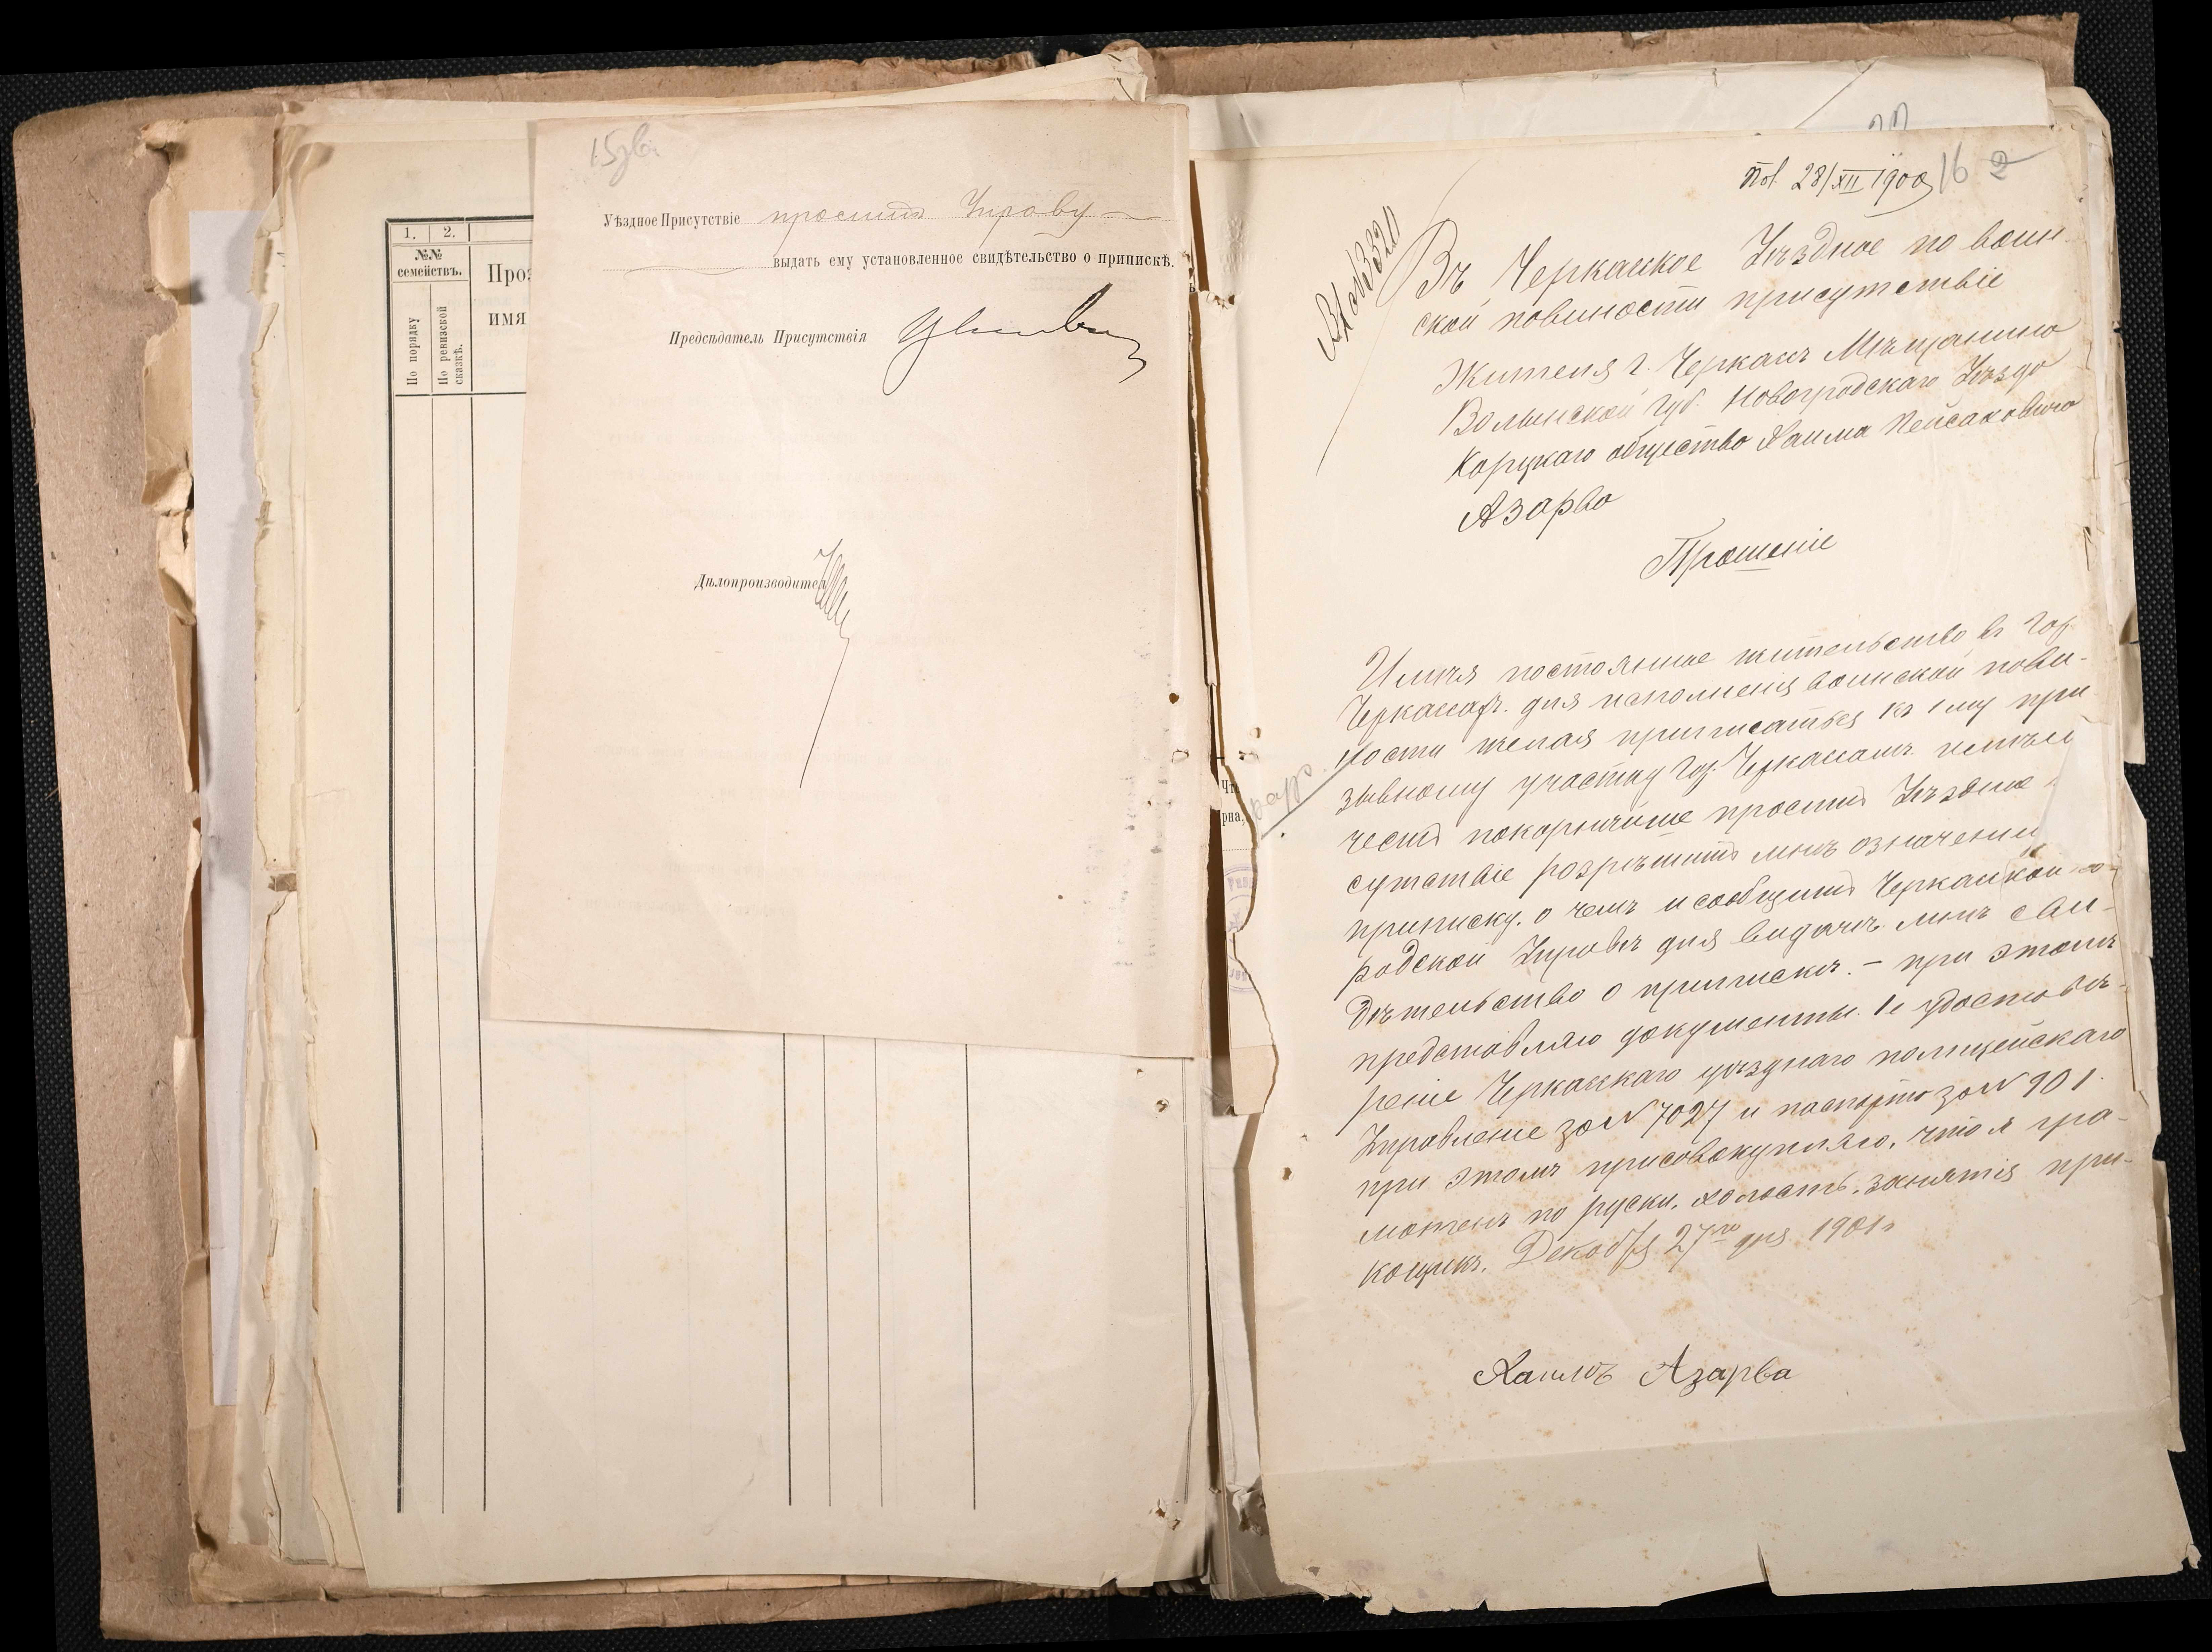 15зв.
Уѣздное Присутствіе проситъ Управу
выдать ему установленное свидѣтельство о припискѣ.
Предсѣдатель Присутствія
Дѣлопроизводитель
1. 2.
№№
семействъ.
По порядку
По ревизской
сказкѣ.
Проз
имя
28/XII 1900 16 2
№ 3320
Въ Черкаское Уѣздное по воин-
ской повиности присутствіе
Жителя г. Черкасъ Мѣщанина
Волынской губ. Новогродскаго Уѣзда
Корцкаго общества Хаима Пейсаховича
Азарва
Прошеніе
Имѣя постоянное жительство въ гор.
Черкасахъ. для исполненія воинской пови-
ности желая приписаться къ 1му при-
зывному участку гор. Черкасамъ имѣю
честь покорнѣйше просить Уѣздное
сутствіе розрѣшить мнѣ означенну
приписку. о чемъ и сообщить Черкаской го-
родской Управѣ для видачѣ мнѣ сви-
дѣтельство о припискѣ. - при этомъ
представляю документы. 1е удостовѣ-
реніе Черкаскаго уѣзднаго полицейскаго
Управленіе за N 7027 и паспорто за N 901.
при этомъ присовокупляю, что я гра-
мотенъ по руски. холостъ. занятія при-
кощикъ. Декабря 27го дня 1901г
Хаимъ Азарва